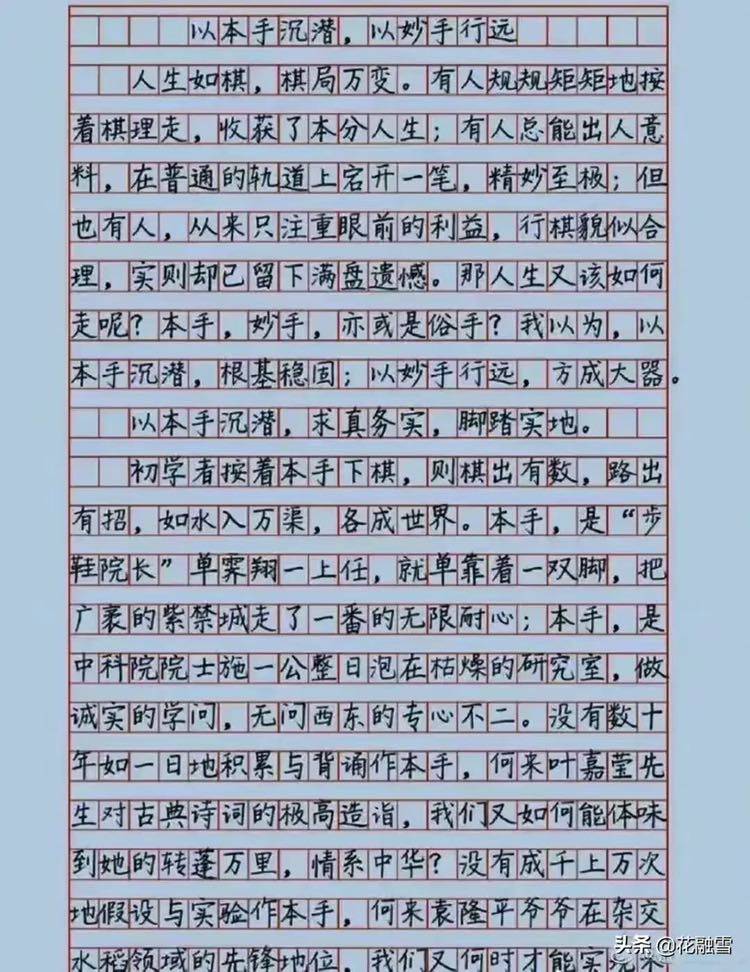 以本手沉潜，以妙手行远
人生如棋，棋局万变。有人规规矩矩地按
着棋理走，收获了本分人生；有人总能出人意
料，在普通的轨道上宕开一笔，精妙至极；但
也有人，从来只注重眼前的利益，行棋貌似合
理，实则却已留下满盘遗憾。那人生又该如何
走呢？本手，妙手，亦或是俗手？我以为，以
本手沉潜，根基稳固；以妙手行远，方成大器。
以本手沉潜，求真务实，脚踏实地。
初学者按着本手下棋，则棋出有数，路出
有招，如水入万渠，各成世界。本手，是“步
鞋院长”单霁翔一上任，就单靠着一双脚，把
广袤的紫禁城走了一番的无限耐心；本手，是
中科院院士施一公整日泡在枯燥的研究室，做
诚实的学问，无问西东的专心不二。没有数十
年如一日地积累与背诵作本手，何来叶嘉莹先
生对古典诗词的极高造诣，我们又如何能体味
到她的转蓬万里，情系中华？没有成千上万次
地假设与实验作本手，何来袁隆平爷爷在杂交
水稻领域的先锋地位，我们又何时才能实
头条 @花融雪